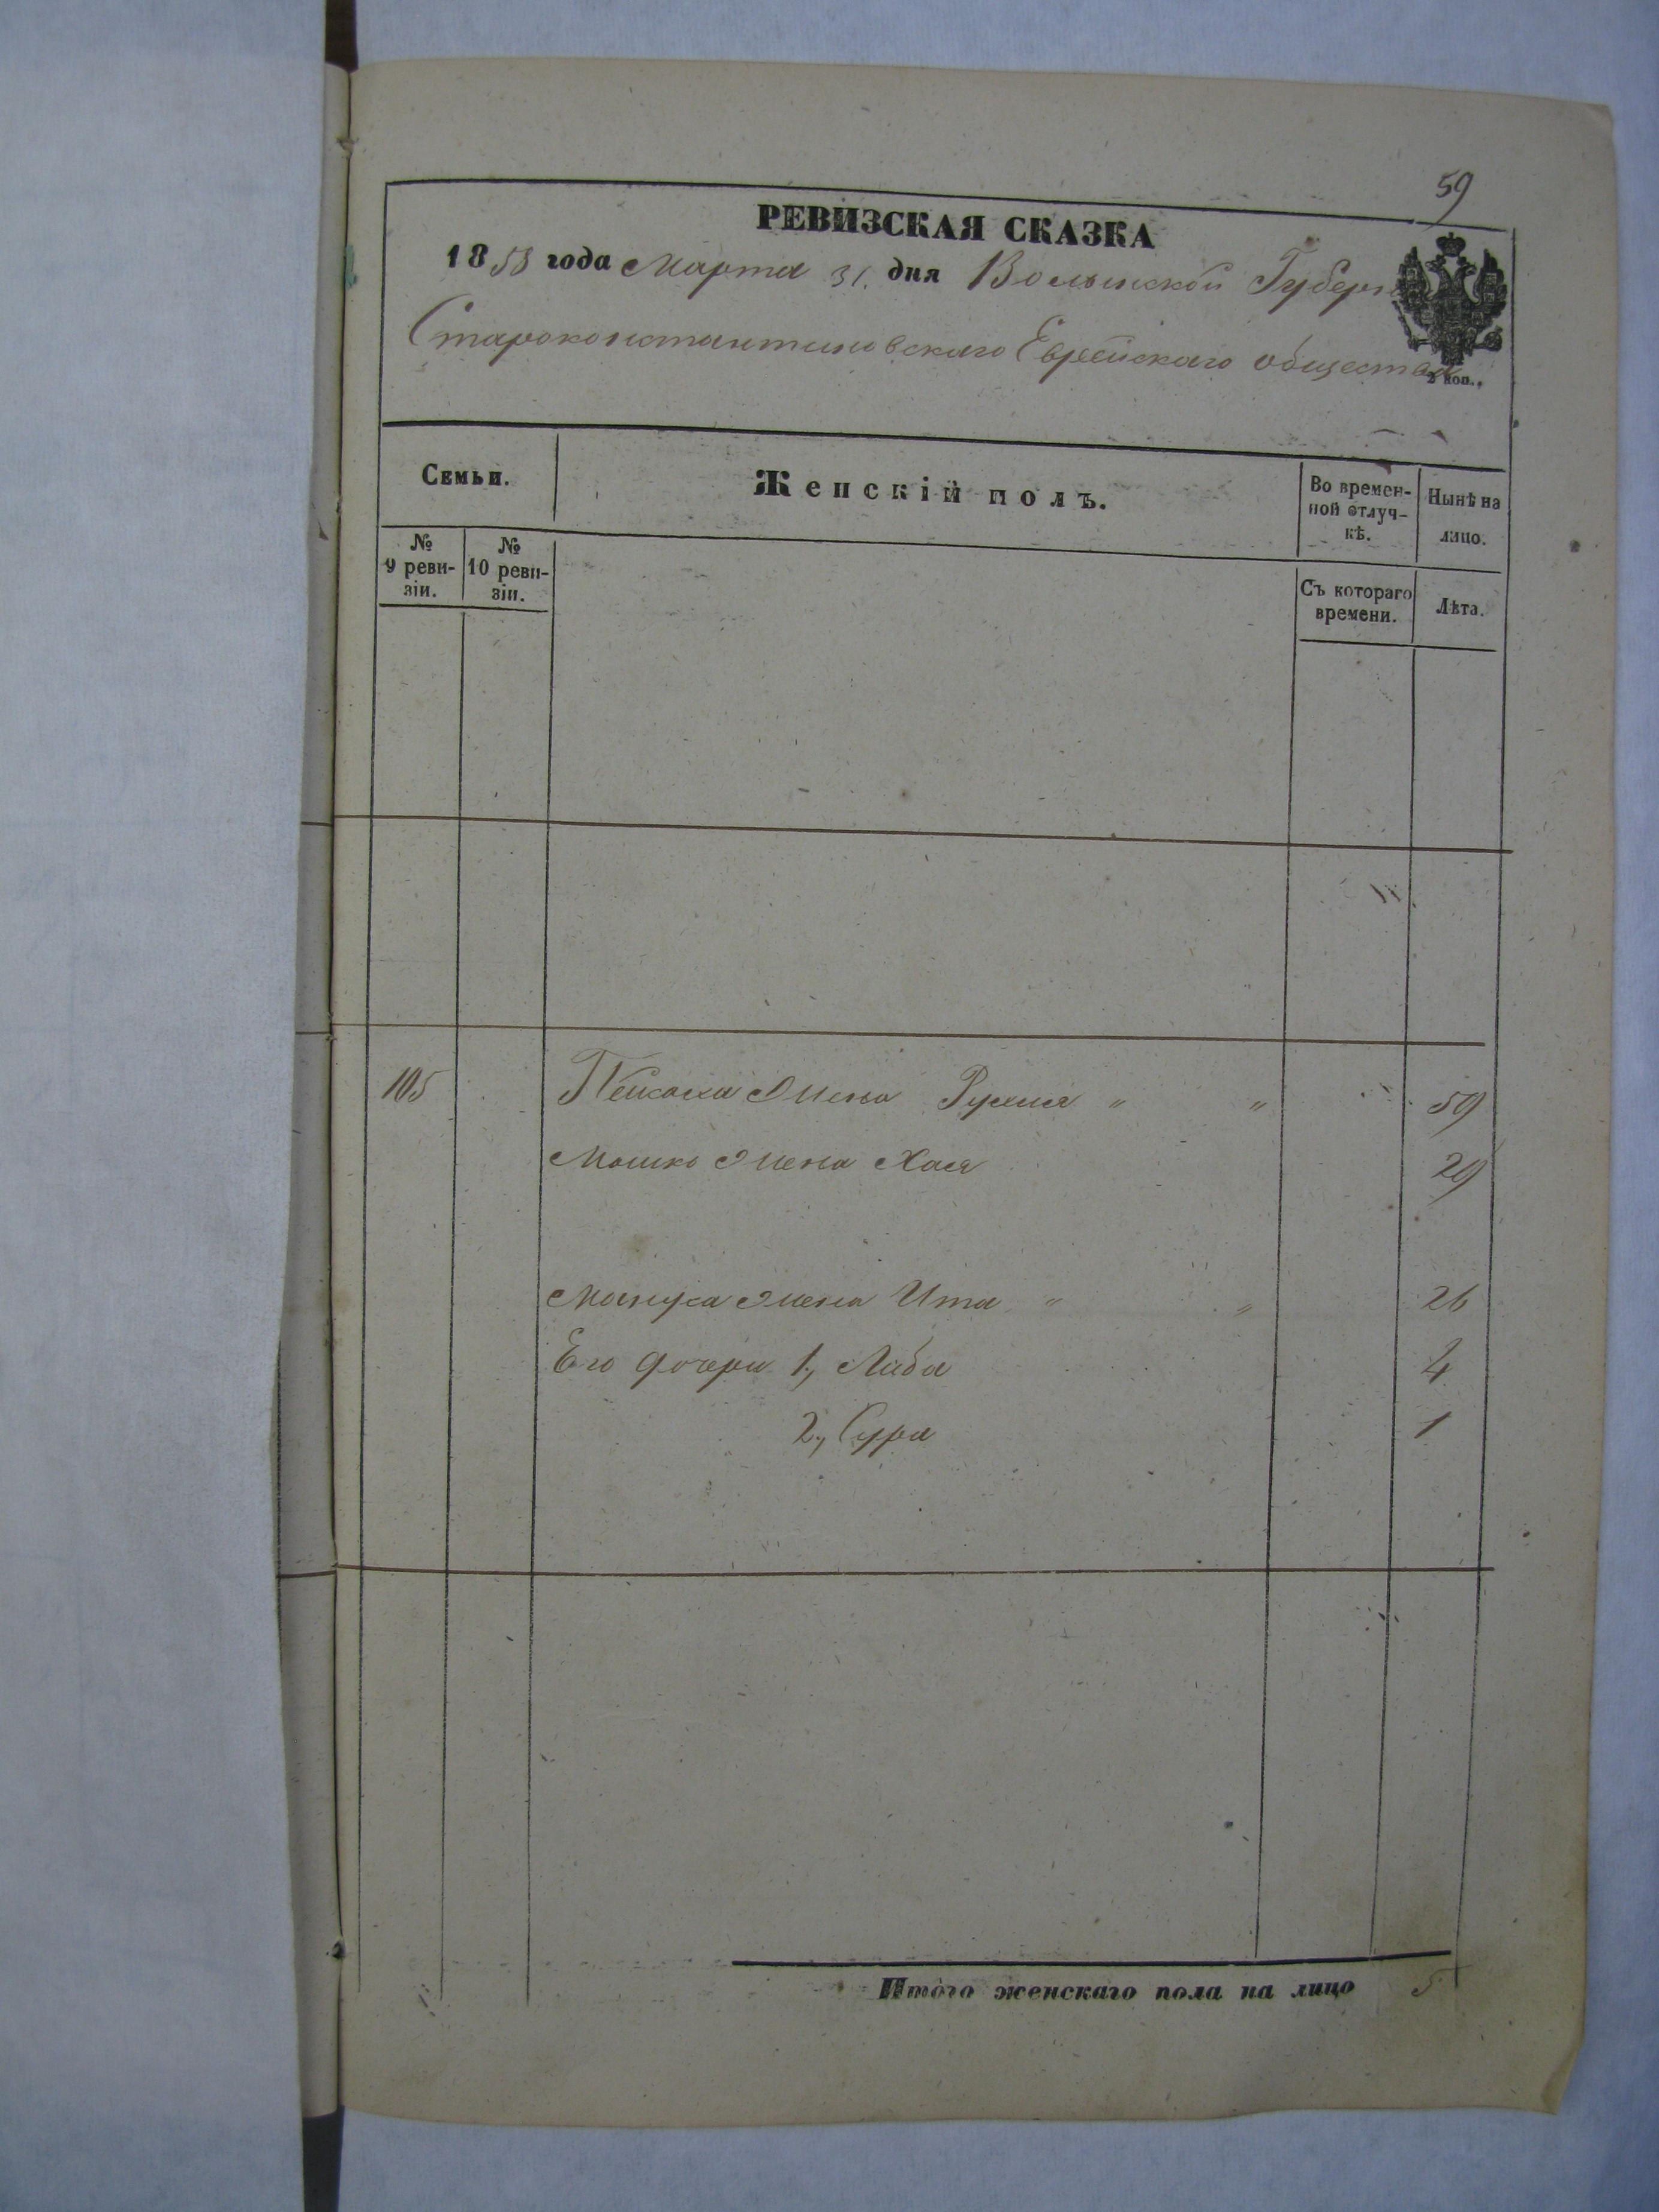 59
РЕВИЗСКАЯ СКАЗКА
1858 года Марта 31. дня Волынской Губерн
Староконстантиновскаго Еврейскаго общества
2 коп.
Семьи.
Женскій полъ.
Во времен-
ной отлуч-
кѣ.
Нынѣ на
лицо.
№
9 реви-
зіи.
№
10 реви-
зіи.
Съ котораго
времени.
Лѣта.
105 Жена Рухля " " 59
Мошко Жена Хася 29
Жена Ита " " 26
Его дочери 1, Либа 4
2, Сура 1
Итого женскаго пола на лицо 5